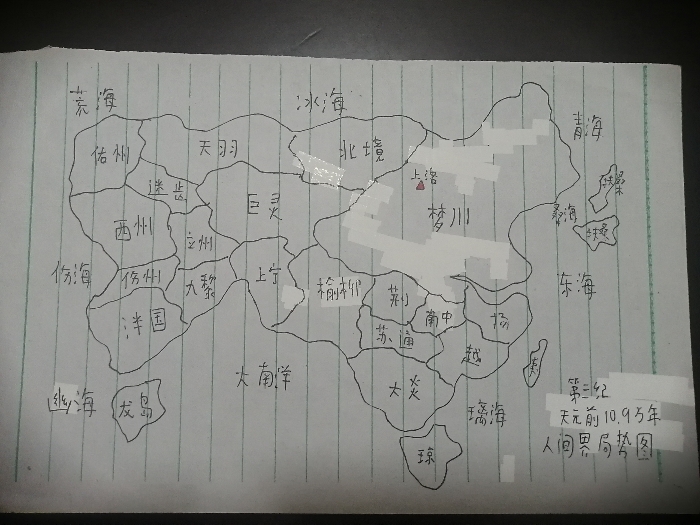 荒海
冰海
青海
佑州
天羽
北境
上洛
扶桑
西州
巨灵
梦川
桑海
立州
份海
份州
九黎
上宁
榆柳
荆
南中
扬
东海
洋国
苏通
越
大南洋
大炎
幽海
龙岛
璃海
琼
第三纪
天元前10.9万年
人间界局势图